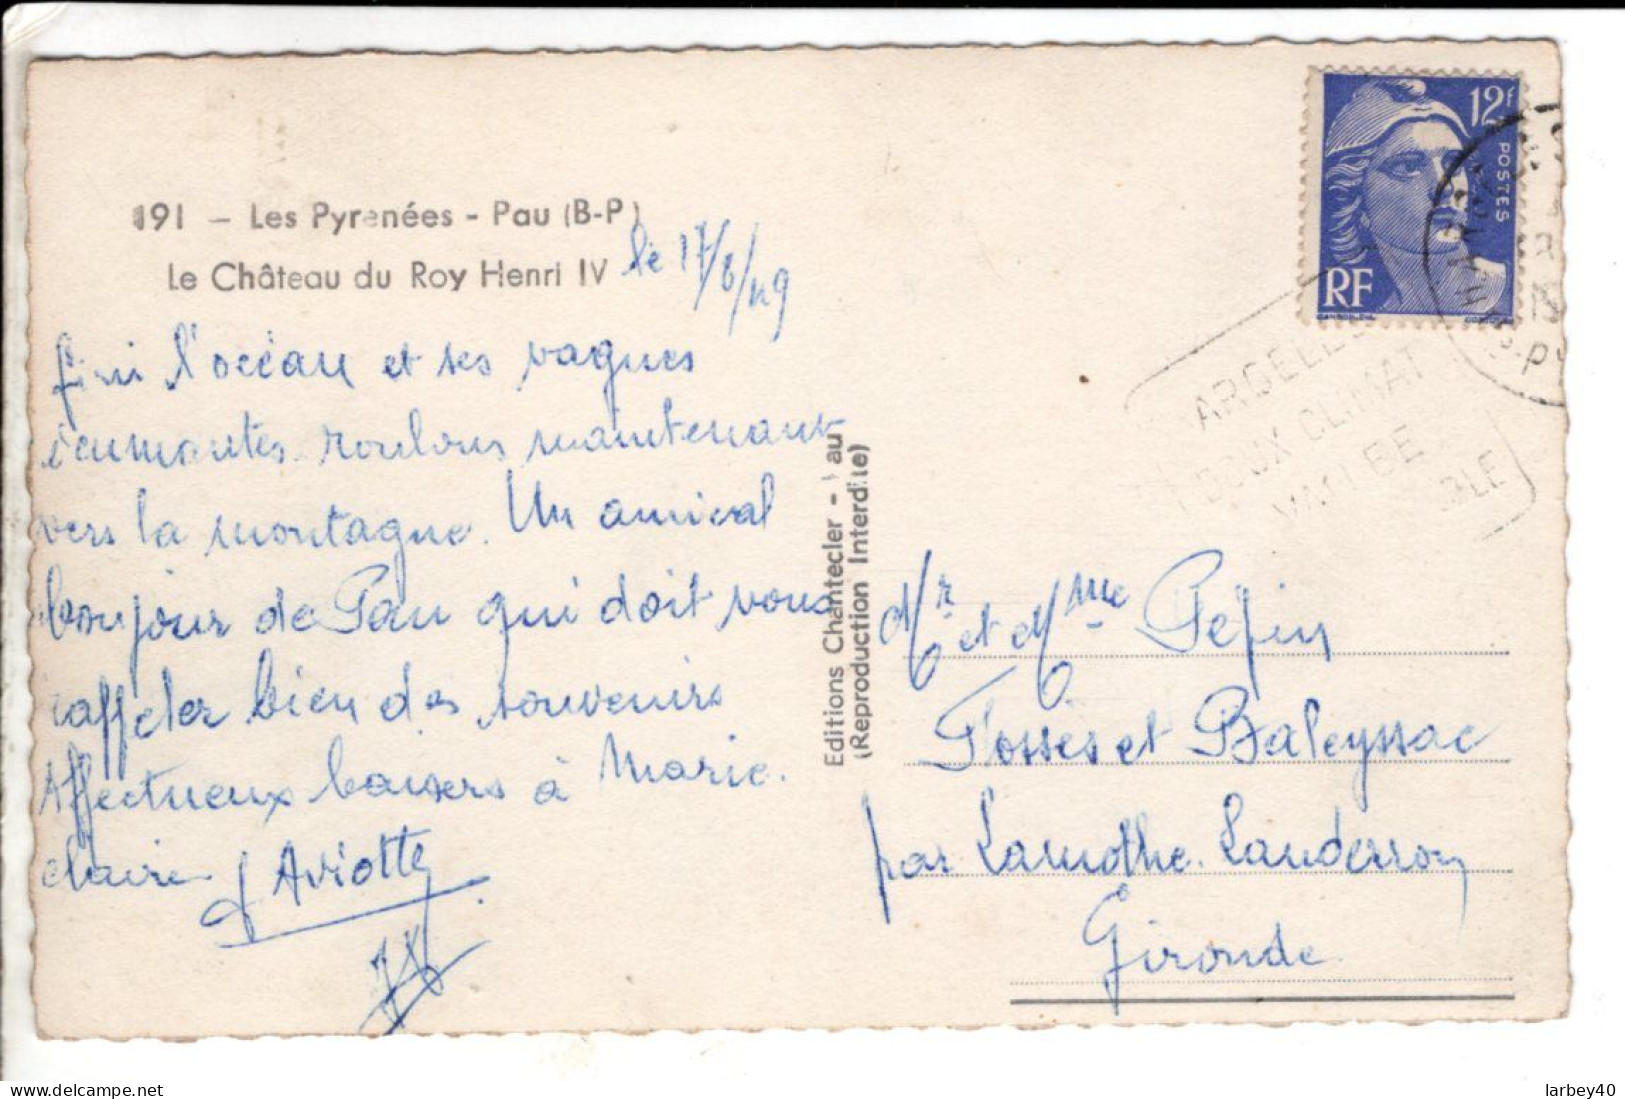 191 - Les Pyrenées - Pau (B-P)
Le Château du Roy Henri IV
le 17/8/49
fini l'océan et ses vagues
écumantes roulons maintenant
vers la montagne. Un amical
bonjour de Pau qui doit vous
rappeler bien des souvenirs
Affectueux baisers à Marie.
Claire
Editions Chantecler - Pau
(Reproduction Interdite)
12F
POSTES
RF
ARGELES
DOUX CLIMAT
Mr et Mme Pepin
Fosses et Baleyssac
par Lamothe Landerron
Gironde
larbey40